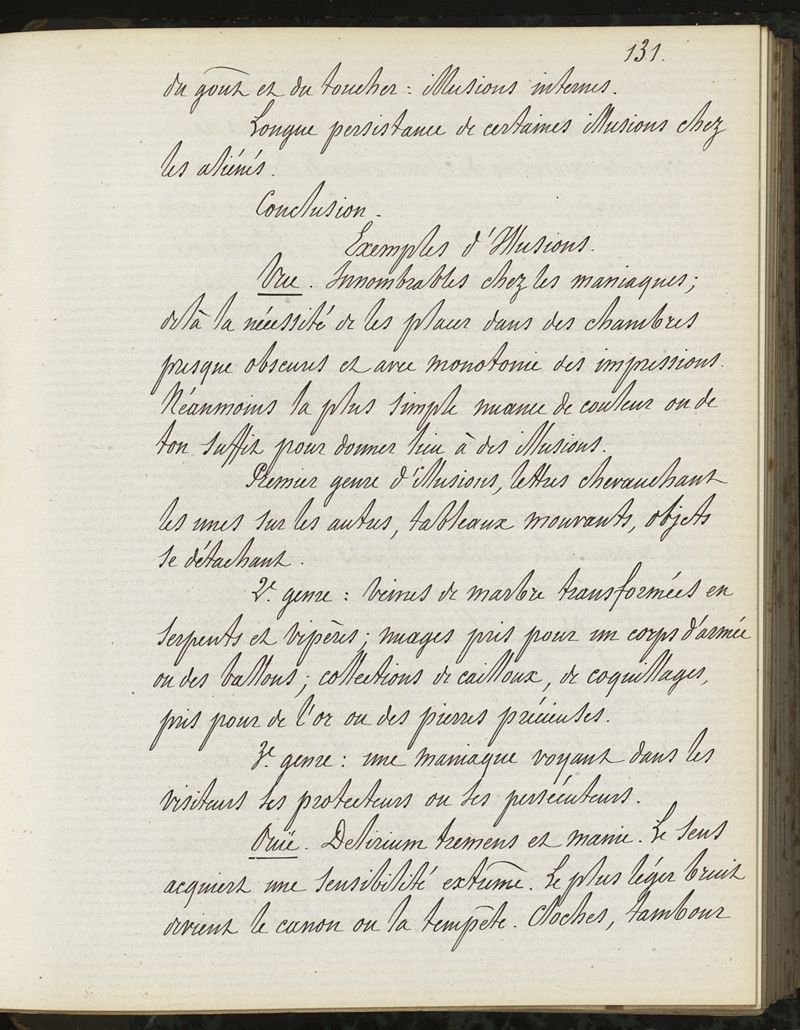 131.
du goût et du toucher : illusions internes.
Longue persistance de certaines illusions chez
les aliénés.
Conclusion.
Exemples d'Illusions.
Vue. Innombrables chez les maniaques ;
delà la nécessité de les placer dans des chambres
presque obscures et avec monotonie des impressions.
Néanmoins la plus simple nuance de couleur ou de
ton suffit pour donner lieu à des illusions.
Premier genre d'illusions, lettres chevauchant
les unes sur les autres, tableaux mouvants, objets
se détachant.
2e genre : veines de marbre transformées en
serpents et vipères ; nuages pris pour un corps d'armée
ou des ballons ; collections de cailloux, de coquillages,
pris pour de l'or ou des pierres précieuses.
3e genre : une maniaque voyant dans les
visiteurs ses protecteurs ou ses persécuteurs.
Ouïe. Delirium tremens et manie. Le sens
acquiert une sensibilité extrême. Le plus léger bruit
devient le canon ou la tempête. Cloches, tambour